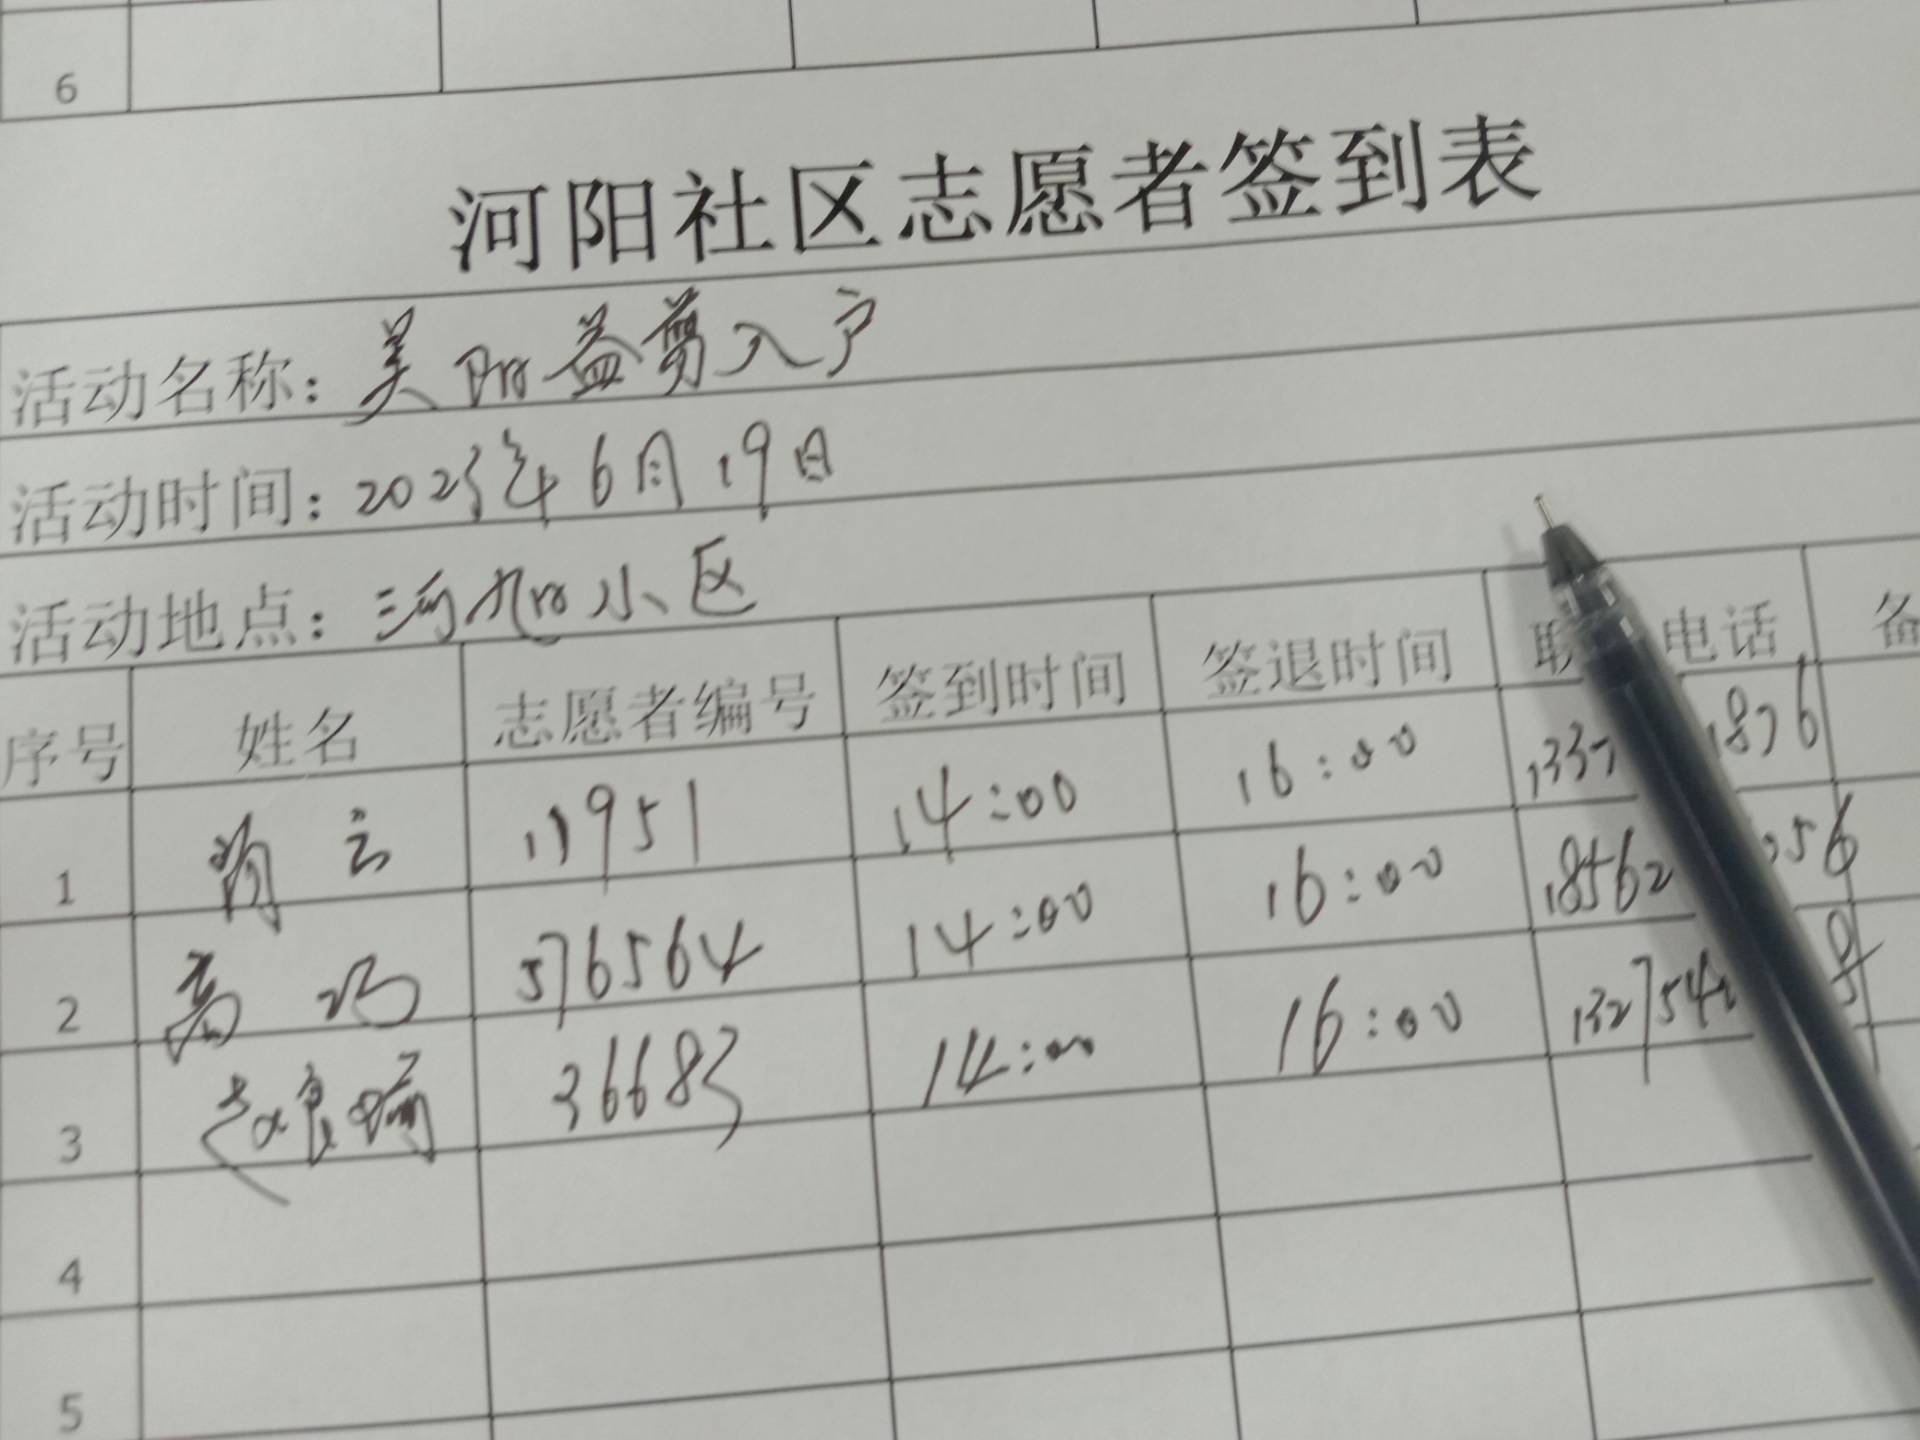 6
河阳社区志愿者签到表
活动名称: 美阳益剪入户
活动时间: 2025年6月19日
活动地点: 河阳小区
序号 姓名 志愿者编号 签到时间 签退时间 联 电话 备
1 11951 14:00 16:00 1337 1876
2 576564 14:00 16:00 18562 056
3 36683 14:00 16:00 132754 8
4
5